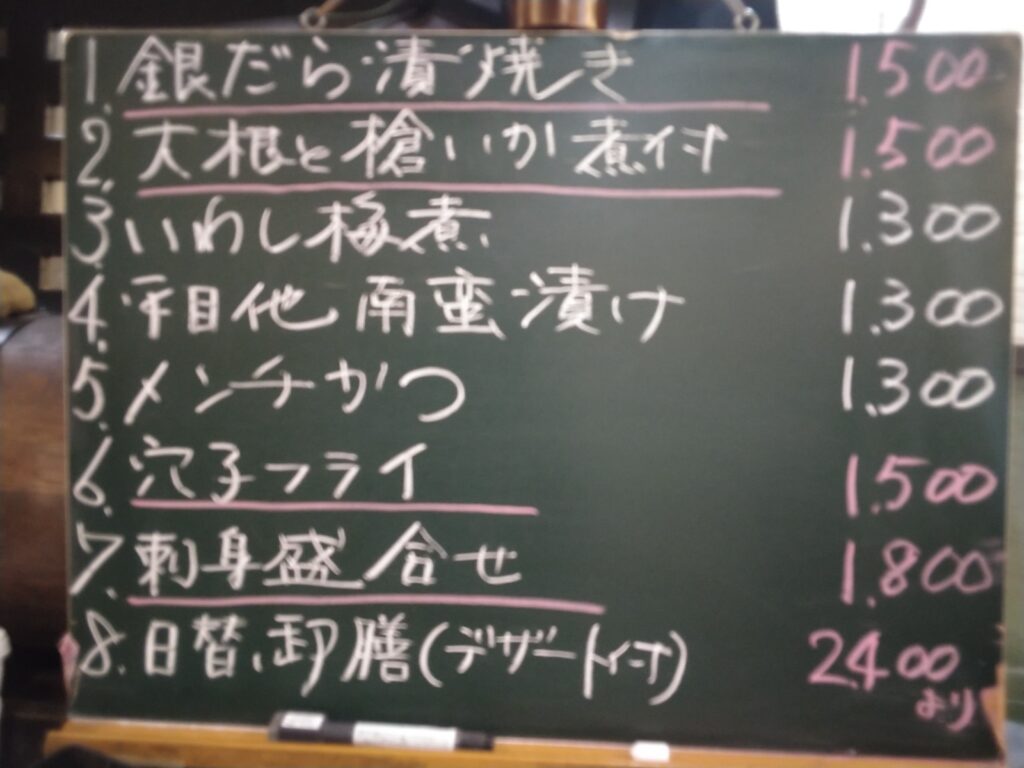 1. 銀だら漬焼き 1.500
2. 大根と槍いか煮付 1.500
3. いわし梅煮 1.300
4. 平目他南蛮漬け 1.300
5. メンチかつ 1.300
6. 穴子フライ 1.500
7. 刺身盛合せ 1.800
8. 日替、卸膳(デザート付) 2.400
より